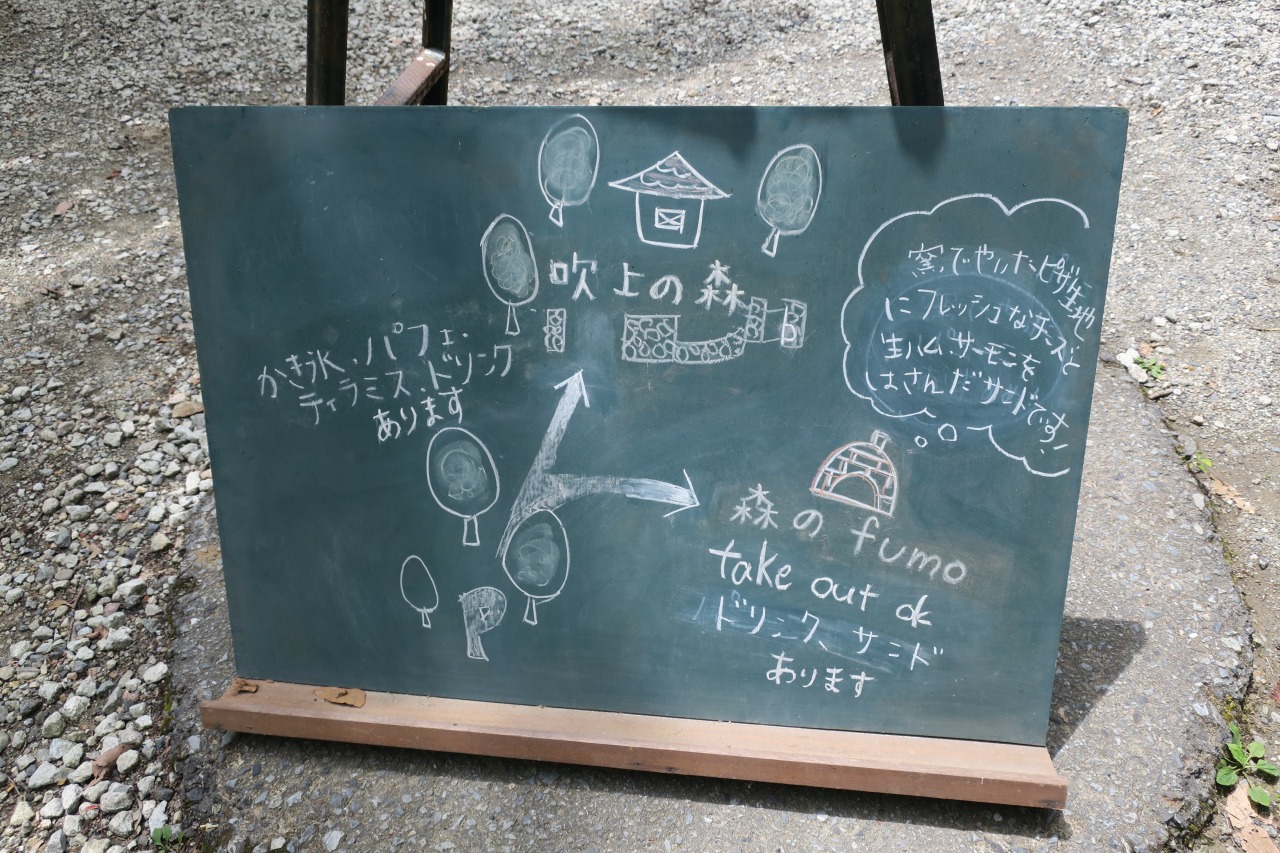 吹上の森
かき氷、パフェ、
ティラミス、ドリンク
あります
窯でやいたピザ生地
にフレッシュなチーズと
生ハム、サーモンを
はさんだサンドです!
森の fumo
take out ok
ドリンク、サンド
あります
P